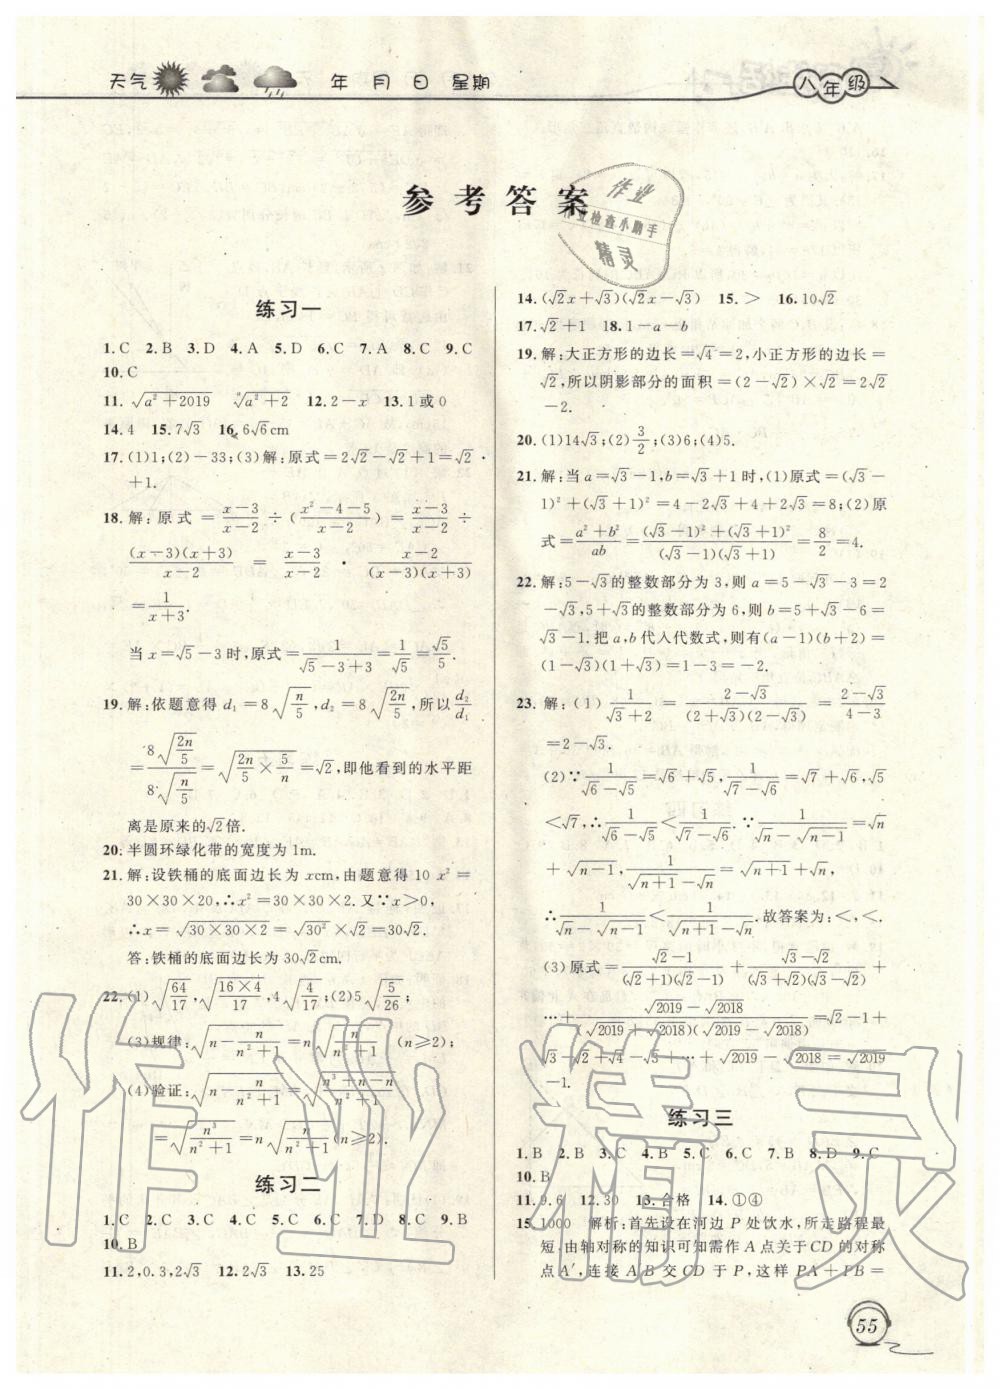 天气 年 月 日 星期
八年级
参考答案
作业
作业检查小助手
精灵
练习一
1.C 2.B 3.D 4.A 5.D 6.C 7.A 8.C 9.C
10.C
11.√(a²+2019) ⁿ√(a²+2) 12.2-x 13.1或0
14.4 15.7√3 16.6√6cm
17.(1)1;(2)-33;(3)解:原式=2√2-√2+1=√2
+1.
18.解:原式=(x-3)/(x-2)÷((x²-4-5)/(x-2))=(x-3)/(x-2)÷
(x-3)(x+3)/(x-2)=(x-3)/(x-2)·(x-2)/((x-3)(x+3))
=1/(x+3).
当x=√5-3时,原式=1/(√5-3+3)=1/√5=√5/5.
19.解:依题意得d₁=8√(n/5),d₂=8√(2n/5),所以d₂/d₁
=8√(2n/5)/8√(n/5)=√(2n/5×5/n)=√2,即他看到的水平距
离是原来的√2倍.
20.半圆环绿化带的宽度为1m.
21.解:设铁桶的底面边长为xcm,由题意得10x²=
30×30×20,∴x²=30×30×2.又∵x>0,
∴x=√(30×30×2)=√30²×√2=30√2.
答:铁桶的底面边长为30√2cm.
22.(1)√(64/17),√((16×4)/17),4√(4/17);(2)5√(5/26);
(3)规律:√(n-n/(n²+1))=n√(n/(n²+1))(n≥2);
(4)验证:√(n-n/(n²+1))=√((n³+n-n)/(n²+1))
=√(n³/(n²+1))=n√(n/(n²+1))(n≥2).
练习二
1.C 2.C 3.C 4.C 5.C 6.C 7.D 8.C 9.B
10.B
11.2,0.3,2√3 12.2√3 13.25
14.(√2x+√3)(√2x-√3) 15.> 16.10√2
17.√2+1 18.1-a-b
19.解:大正方形的边长=√4=2,小正方形的边长=
√2,所以阴影部分的面积=(2-√2)×√2=2√2
-2.
20.(1)14√3;(2)3/2;(3)6;(4)5.
21.解:当a=√3-1,b=√3+1时,(1)原式=(√3-
1)²+(√3+1)²=4-2√3+4+2√3=8;(2)原
式=(a²+b²)/ab=((√3-1)²+(√3+1)²)/((√3-1)(√3+1))=8/2=4.
22.解:5-√3的整数部分为3,则a=5-√3-3=2
-√3,5+√3的整数部分为6,则b=5+√3-6=
√3-1.把a,b代入代数式,则有(a-1)(b+2)=
(1-√3)(1+√3)=1-3=-2.
23.解:(1)1/(√3+2)=(2-√3)/((2+√3)(2-√3))=(2-√3)/(4-3)
=2-√3.
(2)∵1/(√6-√5)=√6+√5,1/(√7-√6)=√7+√6,√5
<√7,∴1/(√6-√5)<1/(√7-√6).∵1/(√n-√(n-1))=√n
+√(n-1),1/(√(n+1)-√n)=√(n+1)+√n,
∴1/(√n-√(n-1))<1/(√(n+1)-√n).故答案为:<,<.
(3)原式=(√2-1)/((√2+1)(√2-1))+(√3-√2)/((√3+√2)(√3-√2))+
…+(√2019-√2018)/((√2019+√2018)(√2019-√2018))=√2-1+
√3-√2+√4-√3+…+√2019-√2018=√2019
-1.
练习三
1.B 2.B 3.C 4.B 5.C 6.C 7.B 8.D 9.C
10.B
11.9.6 12.30 13.合格 14.①④
15.1000 解析:首先设在河边P处饮水,所走路程最
短,由轴对称的知识可知需作A点关于CD的对称
点A′,连接A′B交CD于P,这样PA+PB=
55
作业精灵